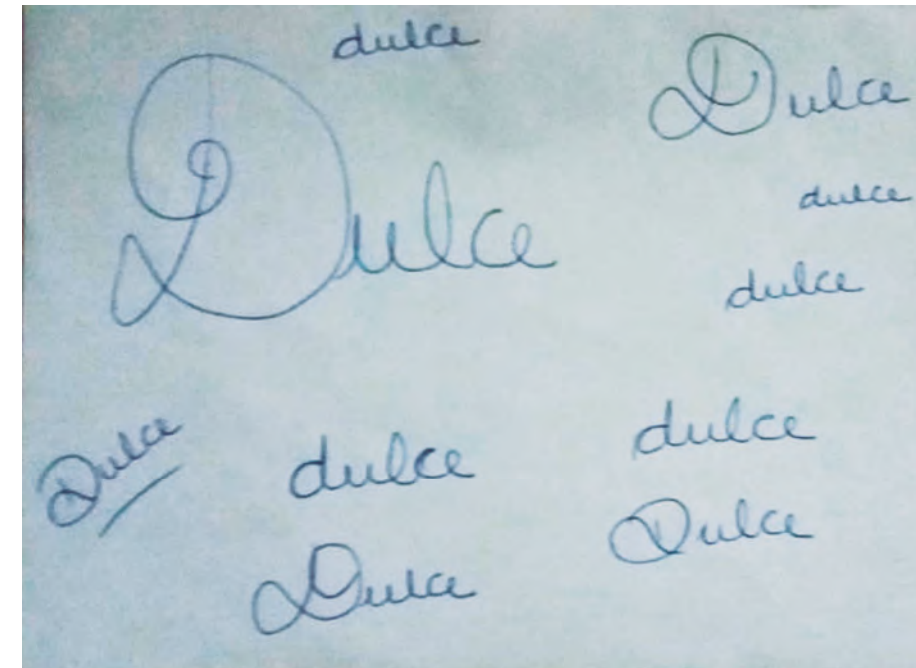 dulce
Dulce
Dulce
dulce
dulce
Dulce
dulce
dulce
Dulce
Dulce